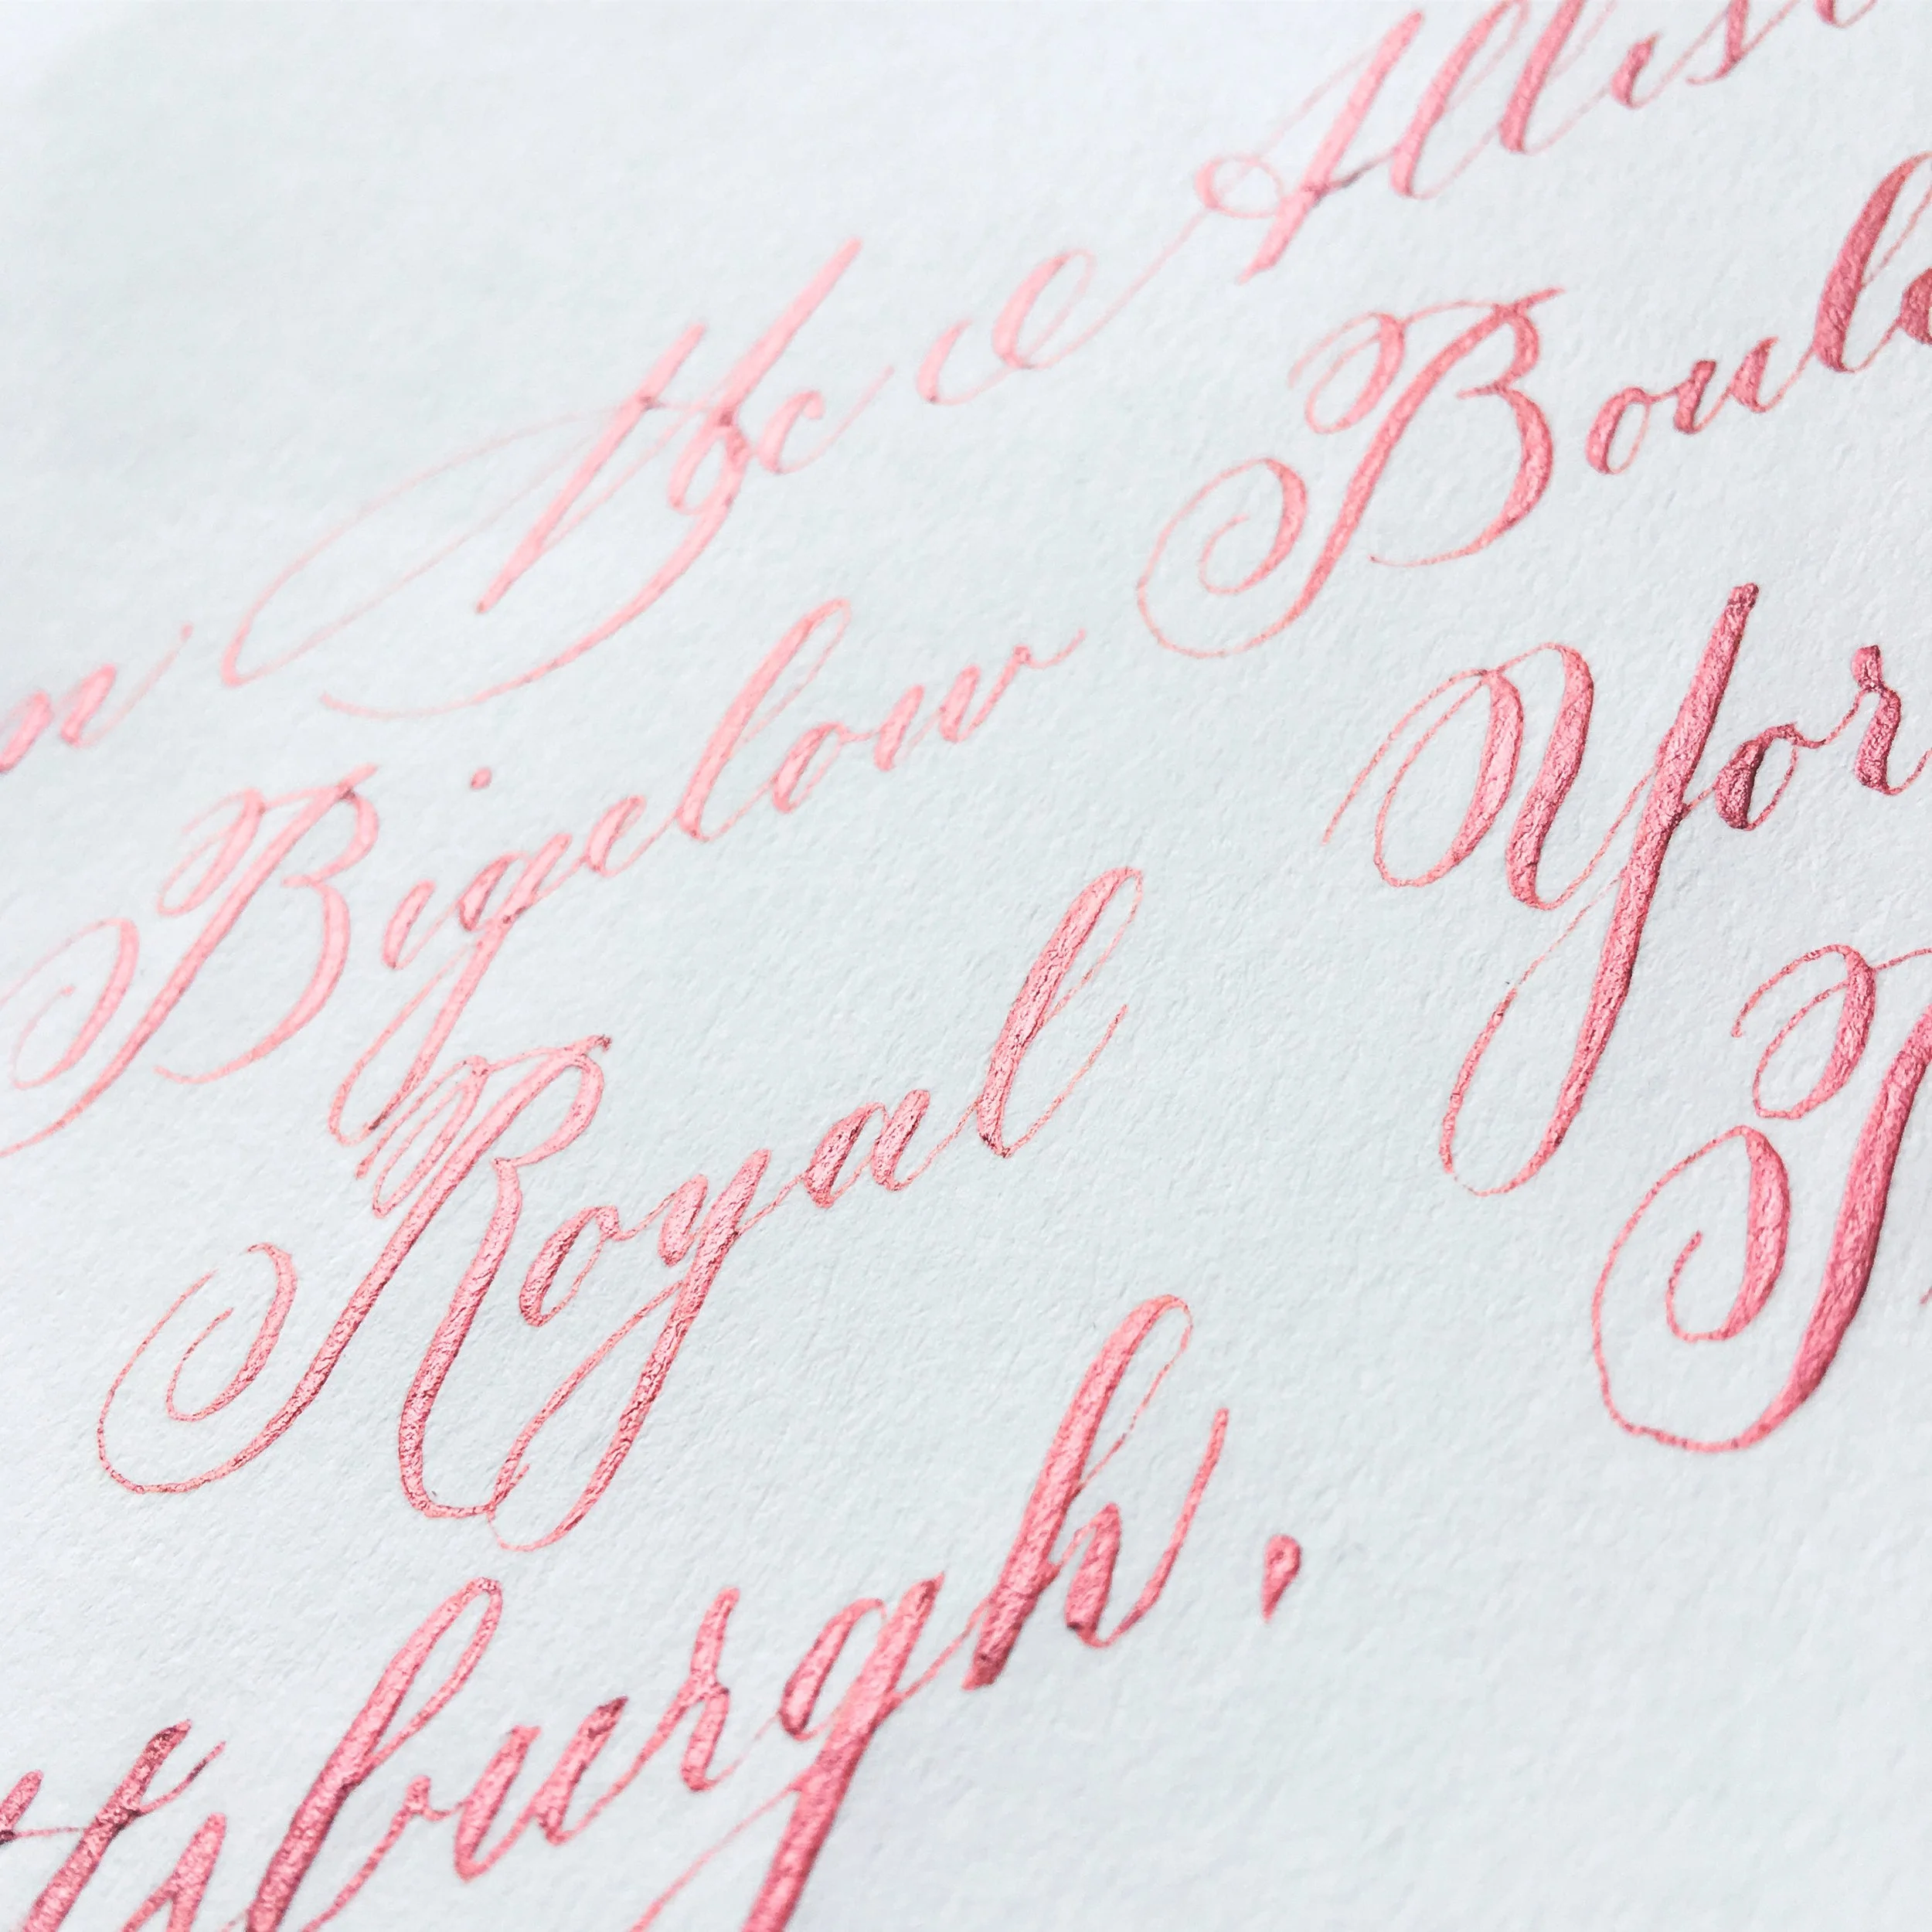 n Allis
Bigelow Boul
Royal Yor
tsburgh.